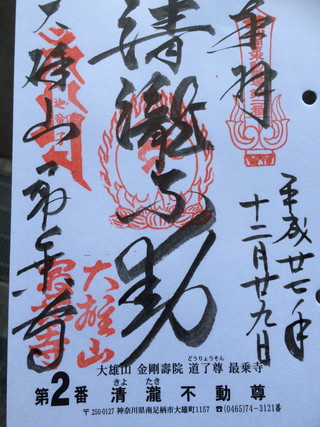 奉拝
平成廿七年
十二月廿九日
清瀧不動
大雄山最乗寺
大雄山
どうりょうそん
大雄山 金剛壽院 道了尊 最乗寺
きよ たき
第2番 清瀧不動尊
〒250-0127 神奈川県南足柄市大雄町1157 ☎(0465)74-3121番